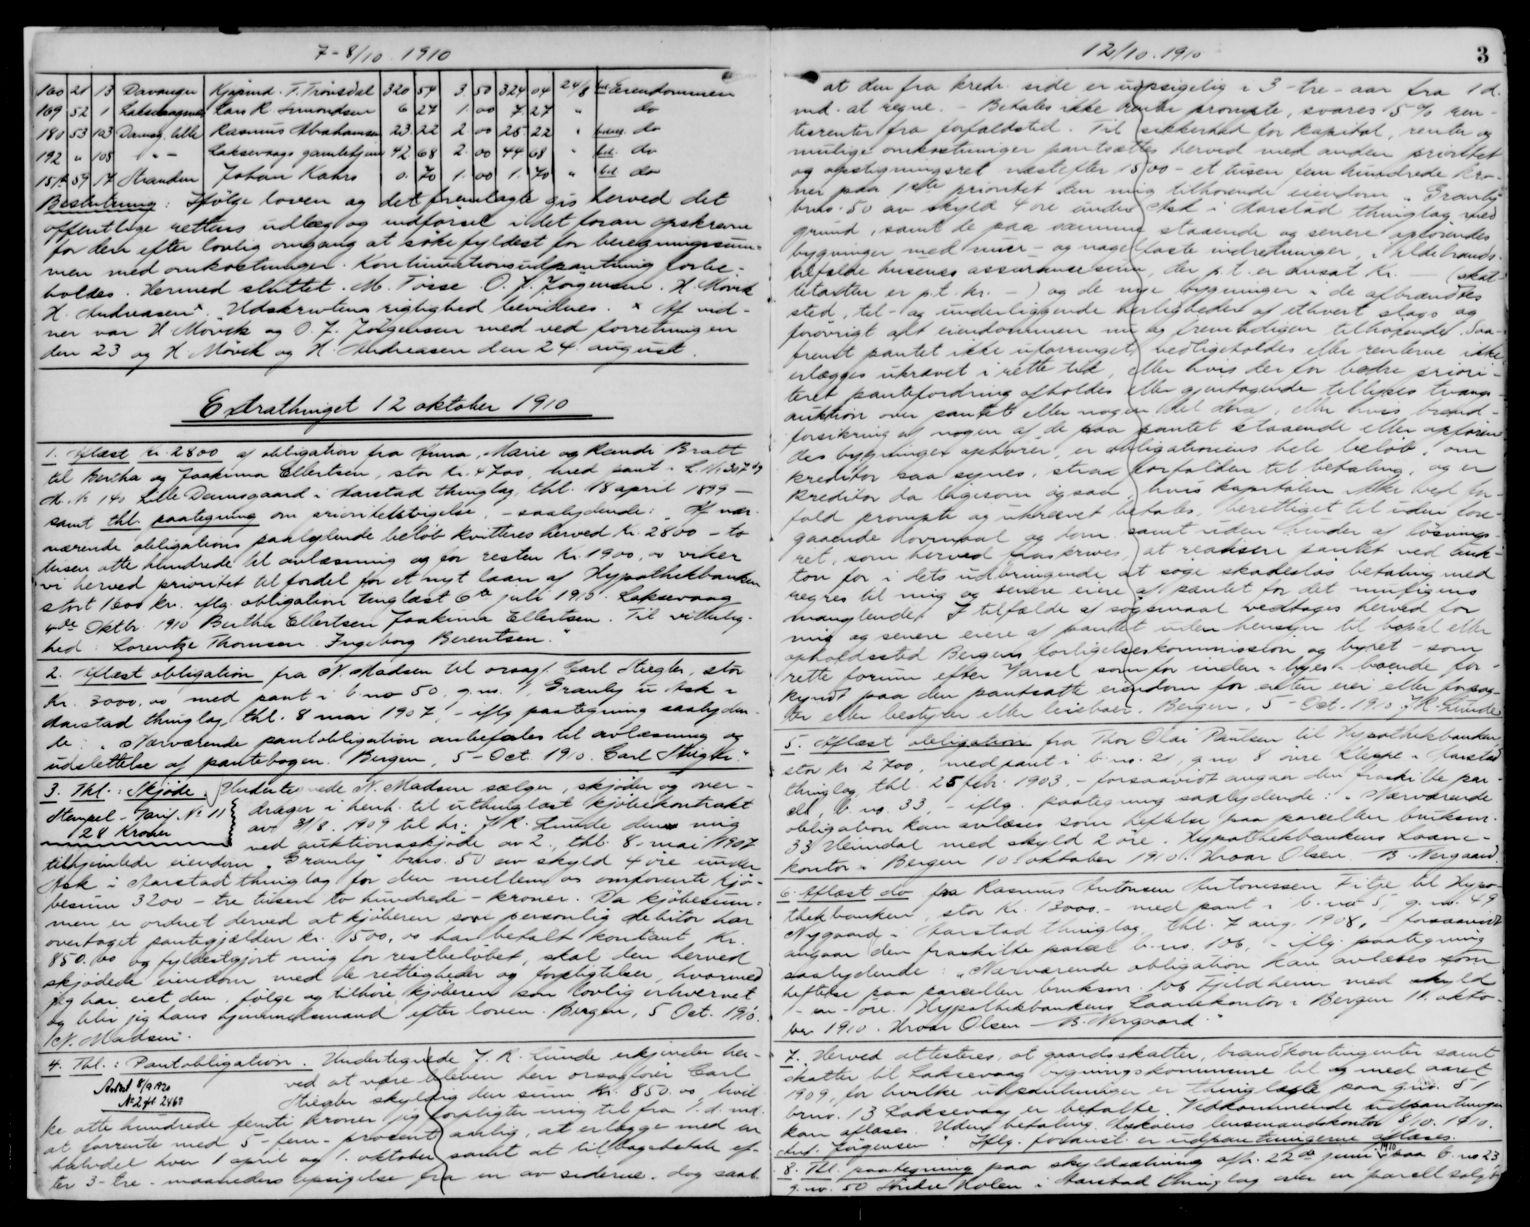 7-8/10. 1910
160 21 13 Davanger Kjøpmd. T. Trönsdal 320 54 3 50 324 04 24/8 Eiendommen
169 52 1 Laksevaagnes Lars R. Simondsen 6 27 1 00 7 27 " do
180 53 103 Damsg. lille Rasmus Abrahamsen 23 22 2 00 25 22 " do
192 " 108 " - Laksevaags gamlehjem 42 68 2 00 44 68 " do
59 17 Stranden Johan Kahrs 0 70 1 00 1 70 " do
Beslutning: Ifølge loven og det fremlagte gis herved det
offentlige rettens udlæg og indførsel i det foran opskrevne
for den efter lovlig omgang at søke fyldest for beregningssum-
men med omkostninger. Kontinuationsudpantning forbe-
holdes. Hermed sluttet. M. Fosse O. J. Jørgensen. H. Mövik
H. Andreasen". Udskriftens rigtighed bevidnes. Af vid-
ner var H. Mövik og O. J. Jørgensen med ved forretningen
den 23 og H. Mövik og H. Andreasen den 24 august.
Extrathinget 12 oktober 1910
1. Aflæst kr. 2800 af obligation fra Anna, Marie og Randi Bratt
til Bertha og Joakima Ellertsen, stor kr. 4700, med pant i L. N. 307
M. N. 140 Lille Damsgaard i Aarstad thinglag, thl. 18 april 1899 -
samt thl. paategning om prioritetsvigelse, - saalydende: "Af nær-
værende obligations paalydende beløb kvitteres herved kr. 2800 - to
tusen otte hundrede til avlæsning og for resten kr. 1900,00 viker
vi herved prioritet til fordel for et nyt laan af Hypothekbanken
stort 1600 kr. iflg. obligation tinglæst 6te juli 1910. Laksevaag
4de Oktbr. 1910 Bertha Ellertsen Joakima Ellertsen. Til vitterlig-
hed: Lorentze Thomsen. Ingeborg Berentsen."
2. Aflæst obligation fra N. Madsen til orsagf. Carl Stiegler, stor
Kr. 3000,00 med pant i b. no 50, g. no. 1, Granly u. Ask i
Aarstad thinglag, thl. 8 mai 1907, - iflg. paategning saalyden-
de: "Nærværende pantobligation anbefales til avlæsning og
udslettelse af pantebogen. Bergen, 5 - Oct. 1910. Carl Stiegler."
3. Thl.: Skjøde. Undertegnede N. Madsen sælger, skjøder og over-
Stempel - Tarif. No 11 drager i henh. til uthinglæst kjøbekontrakt
28 Kroner av 31/8. 1909 til hr. J. R. Lunde den mig
ved auktionsskjøde av 2, thl. 8. mai 1907
tilhjemlede eiendom "Granly" brno. 50 av skyld 4 øre under
Ask i Aarstad thinglag for den mellem os omforente kjø-
besum 3200 - tre tusen to hundrede - kroner. Da kjøbesum-
men er ordnet derved at kjøberen som personlig debitor har
overtaget pantegjælden kr. 1500,00 har betalt kontant kr.
850.00 og fyldestgjort mig for restbeløbet, skal den herved
skjødede eiendom med de rettigheder og forpligtelser, hvormed
jeg har eiet den, følge og tilhøre kjøberen som lovlig erhvervet
og blir jeg hans hjemmelsmand efter loven. Bergen, 5 Oct. 1910.
N. Madsen.
4. Thl.: Pantobligation. Undertegnede J. R. Lunde erkjender her-
Avlæst 8/9 1920 ved at være bleven herr orsagfører Carl
No 2 fol 2467 Stiegler skyldig den sum Kr. 850.00, hvil-
ke otte hundrede femti kroner jeg forpligter mig til fra 1. d. md.
at forrente med 5 - fem - procent aarlig, at erlægge med en
halvdel hver 1 april og 1. oktober samt at tilbagebetale ef-
ter 3 - tre - maaneders opsigelse fra en av siderne, dog saal.
12/10. 1910
3
at den fra kredr. side er uopsigelig i 3 - tre - aar fra 1 d.
md. at regne. - Betales ikke renter prompte, svares 5 % ren-
tesrenter fra forfaldstid. Til sikkerhed for kapital, renter og
mulige omkostninger pantsættes herved med anden prioritet
og opstigningsret næstefter 1500 - et tusen fem hundrede kro-
ner paa 1ste prioritet den mig tilhørende eiendom "Granly"
brno. 50 av skyld 4 øre under Ask i Aarstad thinglag med
grund, samt de paa samme staaende og senere opførendes
bygninger med muur- og nagelfaste indretninger, i ildebrands-
tilfælde husenes assurancesum, der p.t. er ansat kr. - (skat-
tetaxten er p.t. kr. - ) og de nye bygninger i de afbrændtes
sted, til- og underliggende herligheder af ethvert slags og
forøvrigt alt eiendommen nu og fremtidigen tilhørende. Saa-
fremt pantet ikke uforringet vedligeholdes eller renterne ikke
erlægges ukrævet i rette tid, eller hvis der for bedre priori-
teret pantefordring afholdes eller gjentagende tillyses tvangs-
auktion over pantet eller nogen del deraf, eller hvis brand-
forsikring af nogen af de paa pantet staaende eller opføren-
des bygninger ophører, er obligationens hele beløb, om
kreditor saa synes, strax forfalden til betaling, og er
kreditor da ligesom ogsaa, hvis kapitalen ikke ved for-
fald prompte og ukrævet betales, berettiget til uden fore-
gaaende lovmaal og dom samt uden hinder af løsnings-
ret, som herved fraskrives, at realisere pantet ved auk-
tion for i dets udbringende at søge skadesløs betaling med
regres til mig og senere eiere af pantet for det muligens
manglende. I tilfælde af søgsmaal vedtages herved for
mig og senere eiere af pantet uden hensyn til bopæl eller
opholdssted Bergens forligelseskommission og byret - som
rette forum efter Varsel som for inden- byes boende for-
kyndt paa den pantsatte eiendom for enten eier eller forpag-
ter eller bestyrer eller leieboer. Bergen, 5 - Oct. 1910 J. R. Lunde
5. Aflæst obligation fra Thor Olai Paulsen til Hypothekbanken
stor kr. 2700, med pant i b. no. 21, g no 8 øvre Kleppe i Aarstad
thinglag thl. 25 febr. 1903 - forsaavidt angaar den fraskilte par-
cel, b. no. 33, - iflg. paategning saalydende: "Nærværende
obligation kan avlæses som heftelse paa parcellen bruksnr.
33 Heimdal med skyld 2 øre. Hypothekbankens Laane-
kontor i Bergen 10 oktober 1910. Hroar Olsen B. Nergaard.
6. Aflæst do fra Rasmus Antonsen Antonissen Fitje til Hypo-
thekbanken, stor kr. 12000.- med pant i b. no 5, g. no. 49
Nygaard i Aarstad thinglag, thl. 7 aug. 1908, forsaavidt
angaar den fraskilte parcel b. no. 106, - iflg. paategning
saalydende: "Nærværende obligation kan avlæses som
heftelse paa parcellen bruksnr. 106 Fjeldheim med skyld
1 - en - øre. Hypothekbankens Laanekontor i Bergen 11. okto-
ber 1910. Hroar Olsen - B. Nergaard."
7. Herved attesteres, at gaardsskatter, brandkontingenter samt
skatter til Laksevaag bygningskommune til og med aaret
1909, for hvilke utpantninger er thinglæste paa gno. 51
brno. 13 Laksevaag er betalte. Vedkommende udpantninger
kan aflæses. Uden betaling. Askøens lensmandskontor 8/10. 1910.
Chr. Jørgensen". Iflg. foranst. er udpantningerne aflæses.
8. Thl. paategning paa skyldsætning afh. 22de juni 1910 paa b. no 23
g. no. 50 Søndre Holen i Aarstad thinglag over en parcell solgt